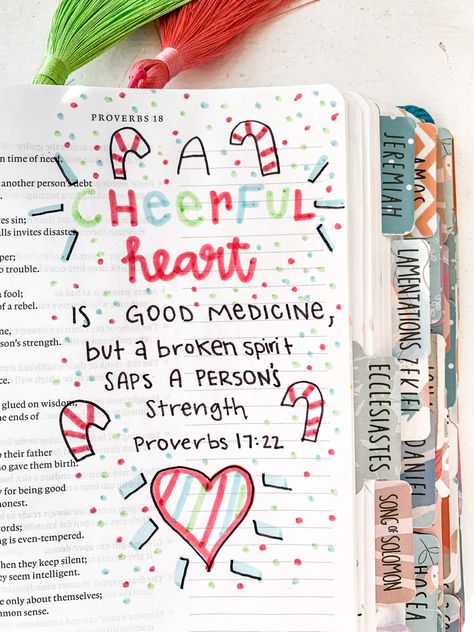 PROVERBS 18
A
CHEERFUL
heart
IS GOOD MEDICINE,
but a broken spirit
SAPS A PERSON'S
Strength
Proverbs 17:22
n time of need.
another person's debt
es sin;
lls invites disaster.
per;
o trouble.
fool;
of a rebel.
rson's strength.
glued on wisdom,
he ends of
their father
o gave them birth.
y for being good
honest.
ords;
ng is even-tempered.
hen they keep silent;
ey seem intelligent.
e only about themselves;
mmon sense.
JEREMIAH
AMOS
LAMENTATIONS
EZEKIEL
ECCLESIASTES
DANIEL
SONG OF SOLOMON
HOSEA